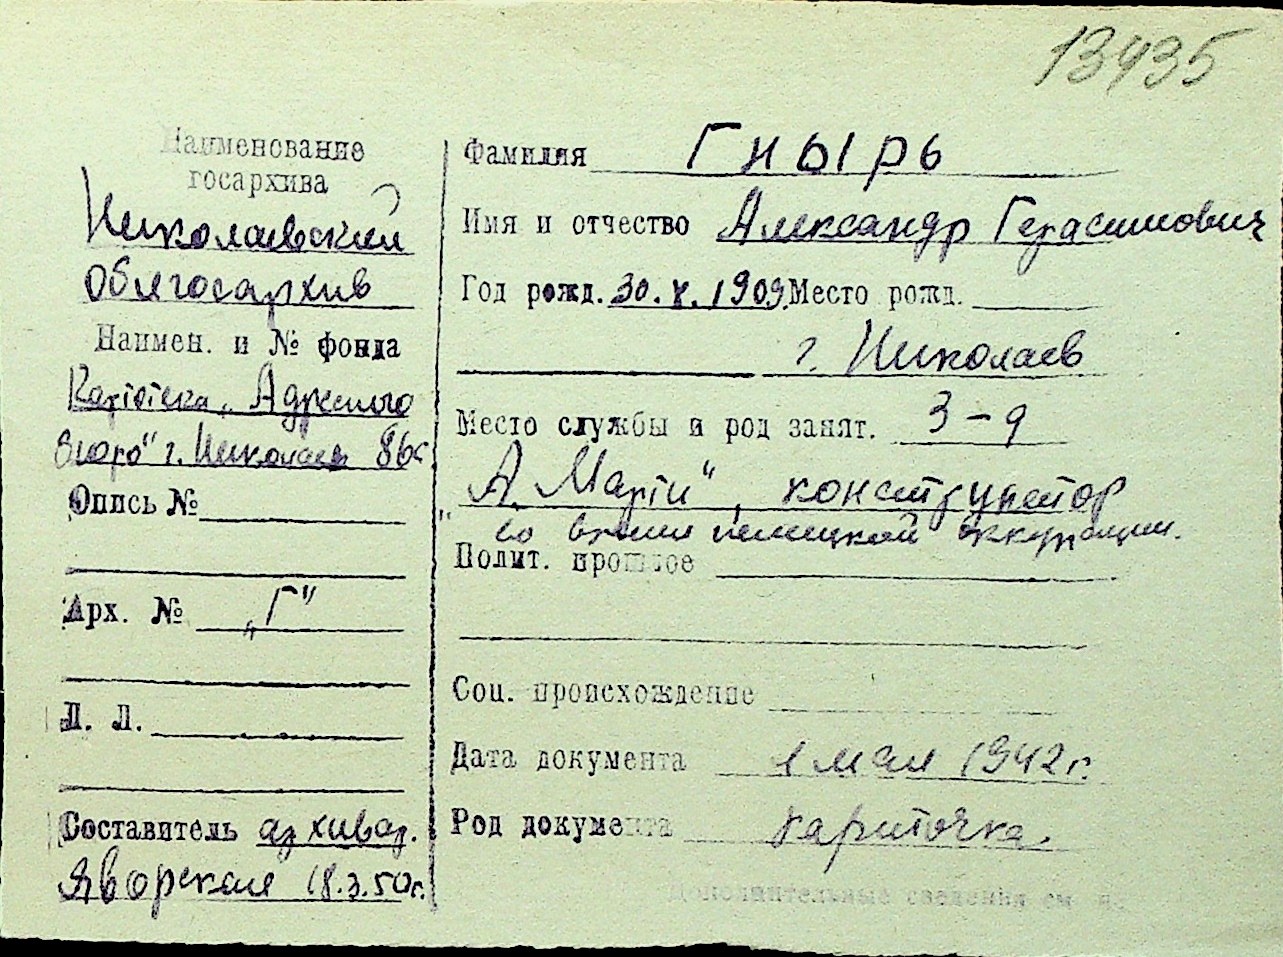 13435
Наименование
госархива
Николаевский
Облгосархив
Наимен. и № фонда
Картотека „Адресного
бюро" г. Николаев 86с
Опись №
Арх. № „Г"
Л. Л.
Составитель архивар.
Яворская 18.3.50г.
Фамилия Гнырь
Имя и отчество Александр Герасимович
Год рожд. 30.X.1909. Место рожд.
г. Николаев
Место службы и род занят. З-д
„А. Марти", конструктор
во время немецкой оккупации.
Полит. прошлое
Соц. происхождение
Дата документа 1 мая 1942г.
Род документа карточка.
Дополнительные сведения см. на